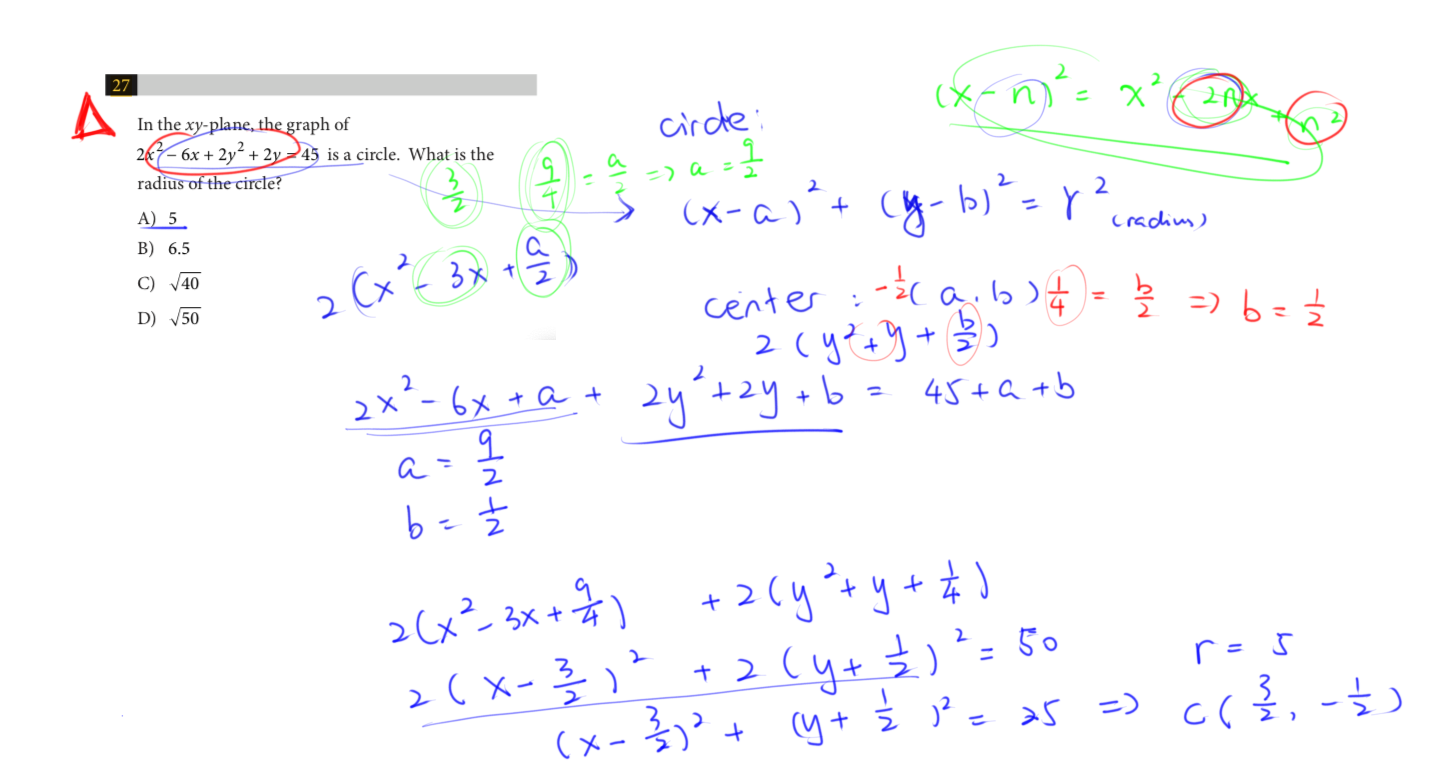 27
In the xy-plane, the graph of
2x² − 6x + 2y² + 2y = 45 is a circle. What is the
radius of the circle?
A) 5
B) 6.5
C) √40
D) √50
(x − n)² = x² − 2nx + n²
circle:
3/2
9/4 = a/2 => a = 9/2
(x − a)² + (y − b)² = r² (radius)
2(x² − 3x + a/2)
center : (a, b)
−1/2
1/4 = b/2 => b = 1/2
2(y² + y + b/2)
2x² − 6x + a + 2y² + 2y + b = 45 + a + b
a = 9/2
b = 1/2
2(x² − 3x + 9/4) + 2(y² + y + 1/4)
2(x − 3/2)² + 2(y + 1/2)² = 50
r = 5
(x − 3/2)² + (y + 1/2)² = 25 => C(3/2, −1/2)